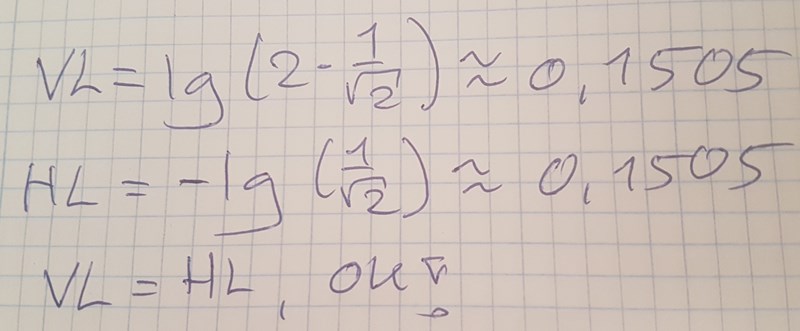 VL = lg (2 · 1/√2) ≈ 0,1505
HL = -lg (1/√2) ≈ 0,1505
VL = HL, OK!